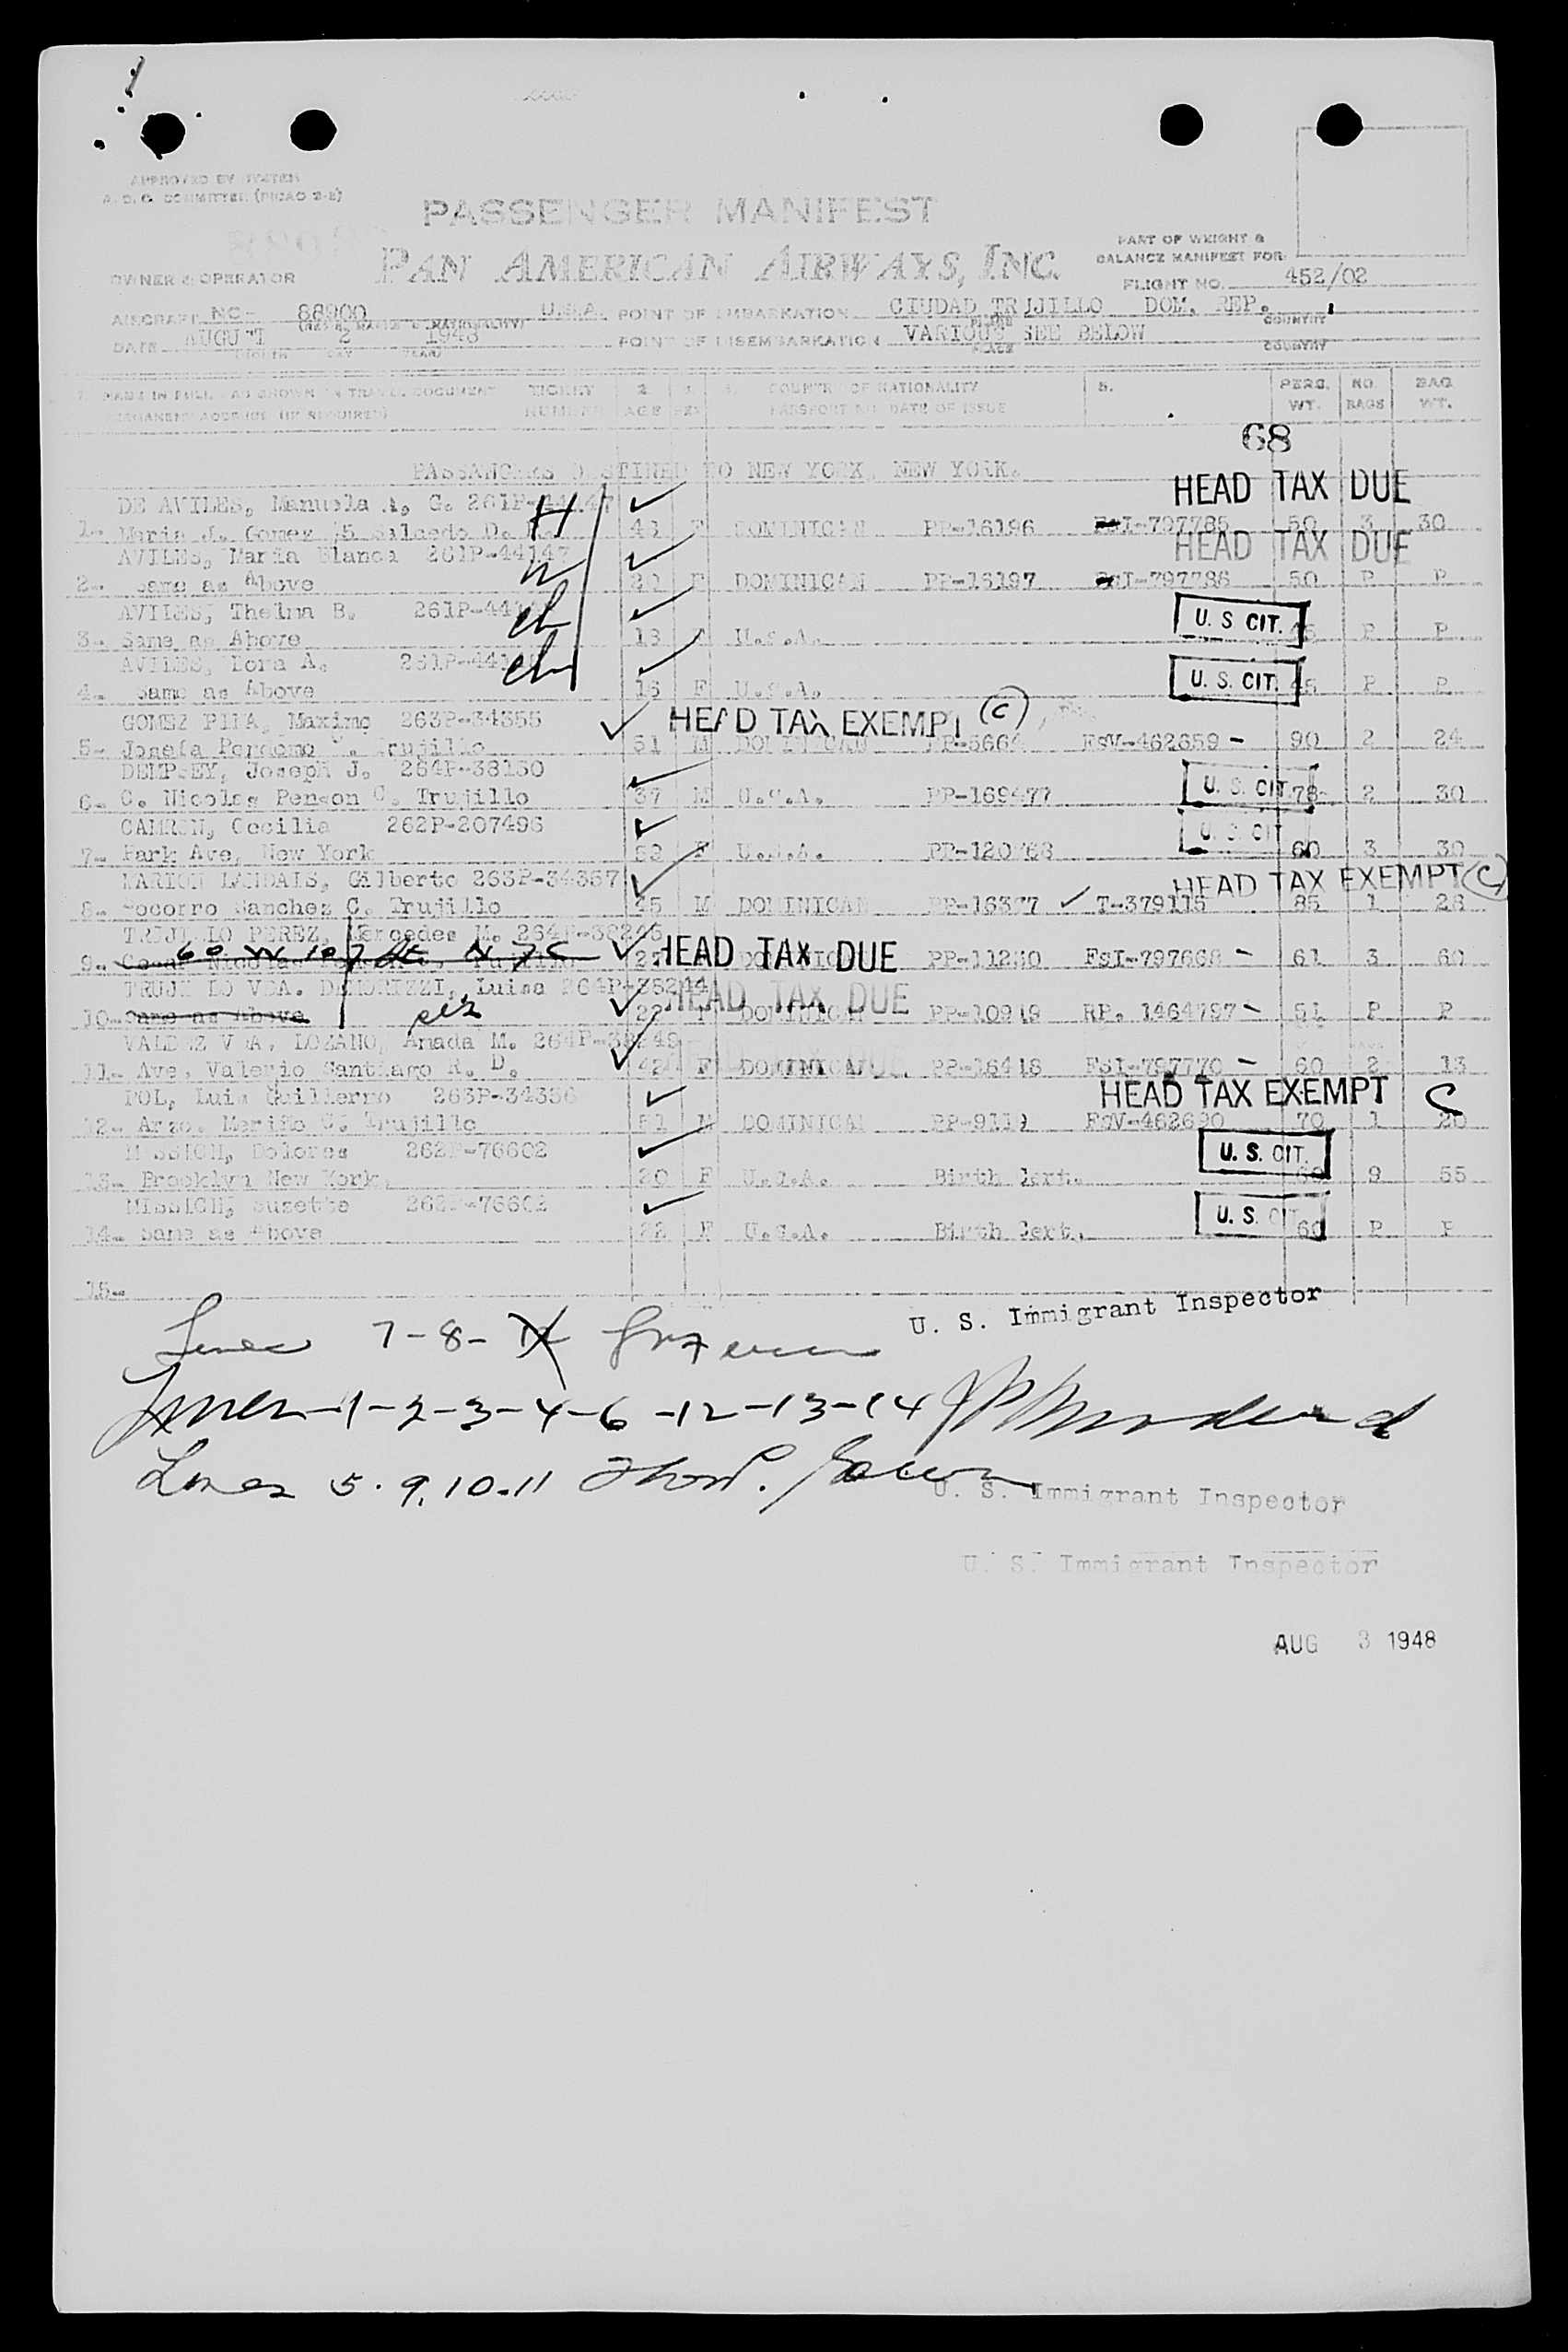 APPROVED BY SYSTEM
A.O.C. COMMITTEE (PICAO 2-2)
PASSENGER MANIFEST
PAN AMERICAN AIRWAYS, INC.
PART OF WEIGHT &
BALANCE MANIFEST FOR
OWNER & OPERATOR
FLIGHT NO. 452/02
AIRCRAFT NC- 88900 U.S.A. POINT OF EMBARKATION CIUDAD TRUJILLO DOM. REP.
PLACE COUNTRY
DATE AUGUST 2 1948 POINT OF DISEMBARKATION VARIOUS SEE BELOW
MONTH DAY YEAR PLACE COUNTRY
NAME IN FULL AS SHOWN IN TRAVEL DOCUMENT TICKET 2 3 COUNTRY OF NATIONALITY 5. PERS. NO. BAG.
PERMANENT ADDRESS (IF REQUIRED) NUMBER AGE SEX PASSPORT NO. DATE OF ISSUE WT. BAGS WT.
68
PASSANGERS DESTINED TO NEW YORK, NEW YORK.
HEAD TAX DUE
DE AVILES, Manuela A. G. 261P-44147
1- Maria J. Gomez 5 Salcedo D. H 43 F DOMINICAN PP-16196 I-797785 50 3 30
HEAD TAX DUE
AVILES, Maria Blanca 261P-44147
2- Same as Above 20 F DOMINICAN PP-16197 I-797786 50 P P
AVILES, Thelma B. 261P-44
U. S CIT.
3- Same as Above ch 18 F U.S.A. P P
AVILES, Dora A. 261P-44
U. S. CIT.
4- Same as Above ch 16 F U.S.A. P P
GOMEZ PINA, Maximo 263P-34355 HEAD TAX EXEMPT (C)
5- Josefa Perdomo C. Trujillo 51 M DOMINICAN PP-5664 FSV-462659 - 90 2 24
DEMPSEY, Joseph J. 264P-38150
U. S. CIT
6- C. Nicolas Penson C. Trujillo 37 M U.S.A. PP-169477 78 2 30
CAMRON, Cecilia 262P-207496
U. S CIT
7- Park Ave, New York F U.S.A. 60 3 30
MARION LANDAIS, Gilberto 263P-34357 HEAD TAX EXEMPT (C)
8- Socorro Sanchez C. Trujillo 45 M DOMINICAN PP-16377 T-379115 85 1 28
TRUJILLO PEREZ, Mercedes M. 264P-38245
60 W 107 St N Y C HEAD TAX DUE
9- DOMINICAN FSI-797668 - 61 3 60
TRUJILLO VDA. DEMORIZZI, Luisa 264P-38244 HEAD TAX DUE
10- Same as Above F DOMINICAN PP-10919 RP. 1464797- 51 P P
VALDEZ VDA. LOZANO, Amada M. 264P-38249
11- Ave. Valerio Santiago R. D. 42 F DOMINICAN PP-16418 FSI-797770 - 60 2 13
POL, Luis Guillermo 263P-34356 HEAD TAX EXEMPT C
12- Arzo. Meriño C. Trujillo 51 M DOMINICAN PP-9119 FSV-462690 70 1 20
MISSICH, Dolores 262P-76602
U. S. CIT.
13- Brooklyn New York, 20 F U.S.A. Birth Cert. 9 55
MISSICH, Suzette 262P-76602
U. S. CIT
14- Same as Above 22 F U.S.A. Birth Cert. 60 P P
15-
U. S. Immigrant Inspector
Lines 7-8-
Lines -1-2-3-4-6-12-13-14
Lines 5.9.10.11
U. S. Immigrant Inspector
U. S. Immigrant Inspector
AUG 3 1948